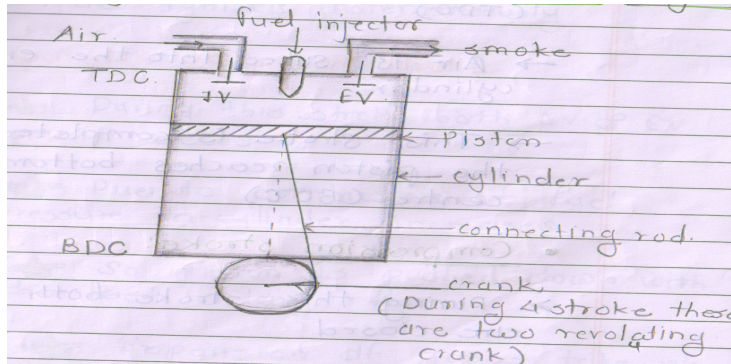 Fuel injector
Air.
smoke
TDC.
IV
EV
Piston
cylinder
connecting rod.
BDC
crank
(During 4 stroke these
are two revolating
crank)